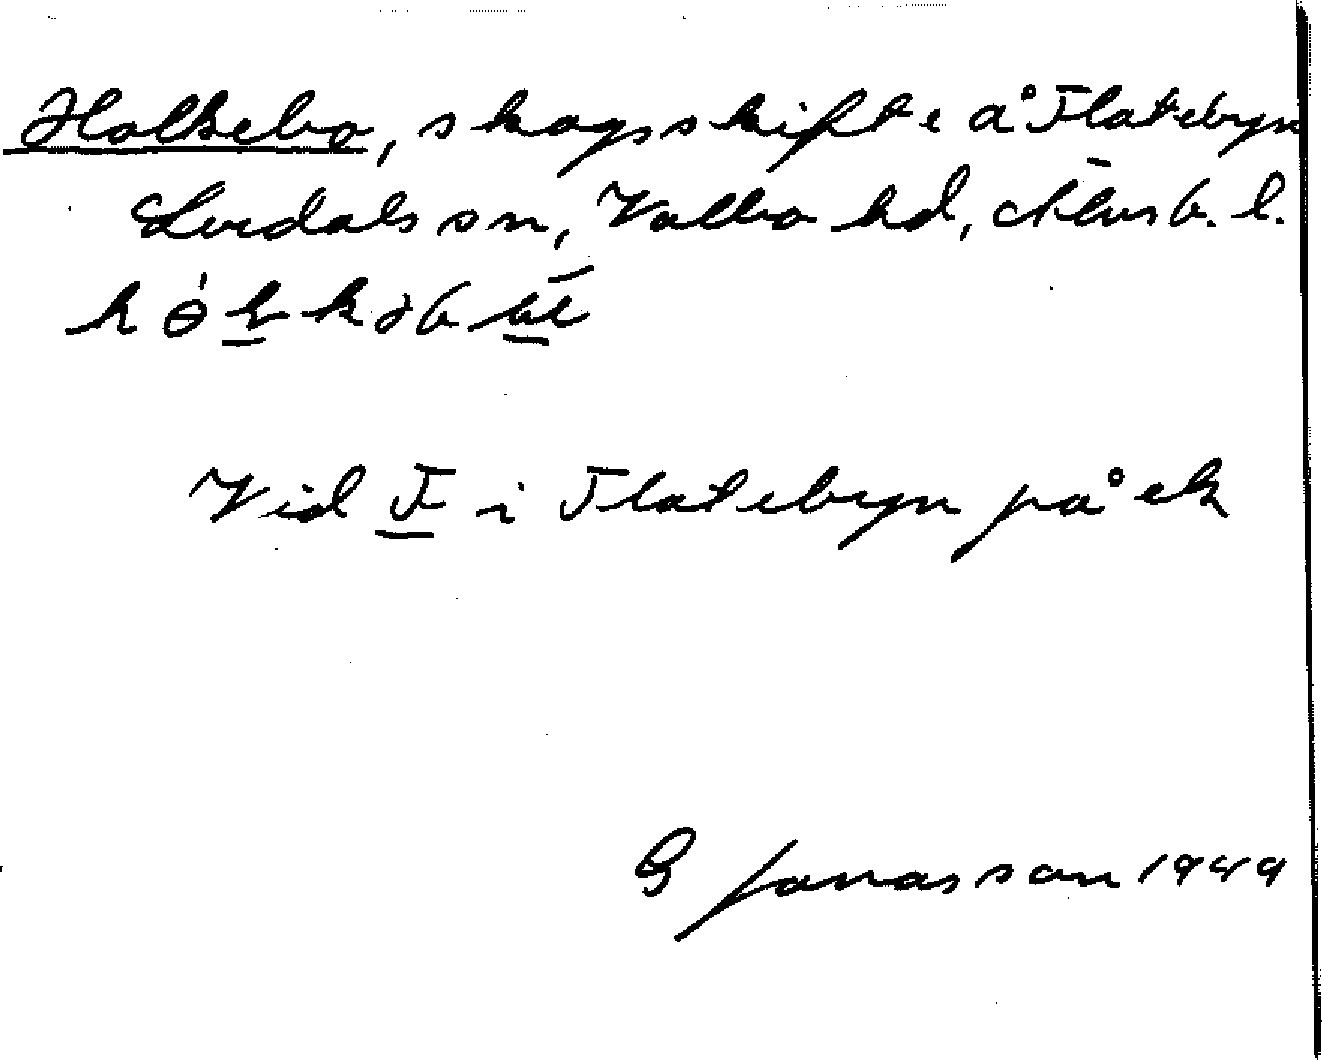 Holkebo, skogsskifte å Flatebyn
Lerdals sn, Valbo hd, Älvsb. l.
Vid F i Flatebyn på ek
G Jonasson 1949